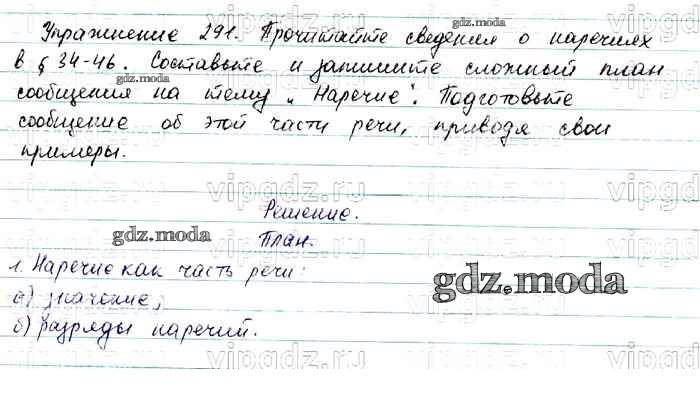 Упражнение 291. Прочитайте сведения о наречиях
в § 34-46. Составьте и запишите сложный план
сообщения на тему „Наречие". Подготовьте
сообщение об этой части речи, приводя свои
примеры.
Решение.
План.
1. Наречие как часть речи:
а) значение;
б) разряды наречий.
gdz.moda
gdz.moda
gdz.moda
gdz.moda
gdz.moda
vipgdz.ru